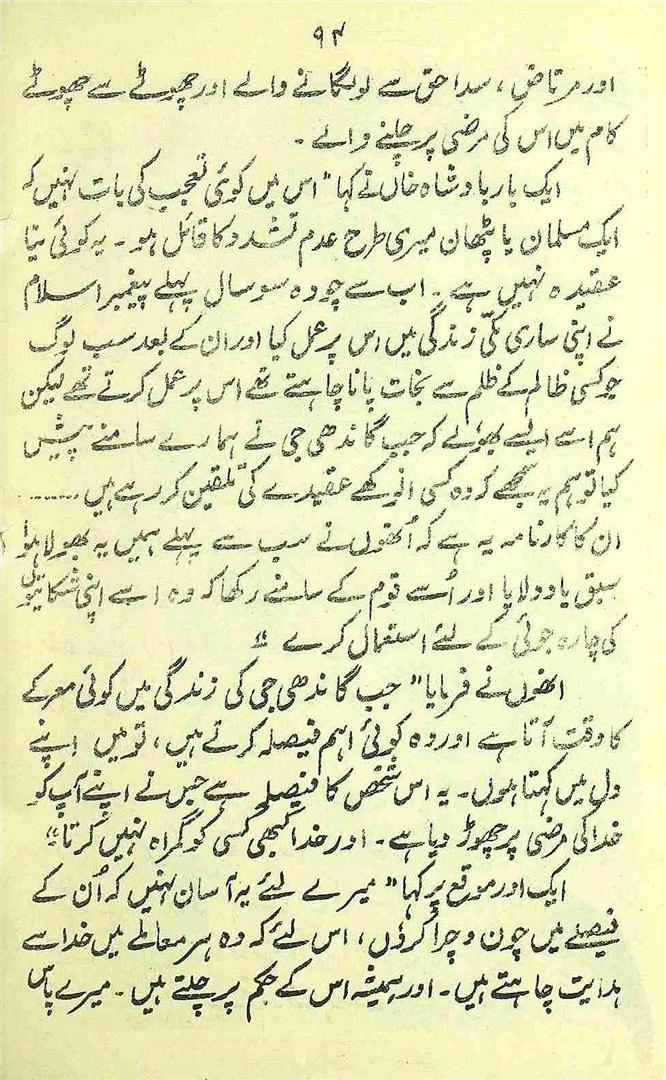 ۹۴
اور مرتاض، سدا حق سے لو لگانے والے اور چھوٹے سے چھوٹے
کام میں اس کی مرضی پر چلنے والے۔
ایک بار بادشاہ خاں نے کہا " اس میں کوئی تعجب کی بات نہیں کہ
ایک مسلمان یا پٹھان میری طرح عدم تشدد کا قائل ہو۔ یہ کوئی نیا
عقیدہ نہیں ہے۔ اب سے چودہ سو سال پہلے پیغمبر اسلام
نے اپنی ساری مکی زندگی میں اس پر عمل کیا اور ان کے بعد سب لوگ
جو کسی ظالم کے ظلم سے نجات پانا چاہتے تھے اس پر عمل کرتے تھے لیکن
ہم اسے ایسے بھولے کہ جب گاندھی جی نے ہمارے سامنے پیش
کیا تو ہم یہ سمجھے کہ وہ کسی انوکھے عقیدے کی تلقین کر رہے ہیں ........
ان کا کارنامہ یہ ہے کہ اُنھوں نے سب سے پہلے ہمیں یہ بھولا ہوا
سبق یاد دلایا اور اُسے قوم کے سامنے رکھا کہ وہ اسے اپنی شکایتوں
کی چارہ جوئی کے لئے استعمال کرے "
انھوں نے فرمایا " جب گاندھی جی کی زندگی میں کوئی معرکے
کا وقت آتا ہے اور وہ کوئی اہم فیصلہ کرتے ہیں، تو میں اپنے
دل میں کہتا ہوں۔ یہ اس شخص کا فیصلہ ہے جس نے اپنے آپ کو
خدا کی مرضی پر چھوڑ دیا ہے۔ اور خدا کبھی کسی کو گمراہ نہیں کرتا"
ایک اور موقع پر کہا " میرے لئے یہ آسان نہیں کہ اُن کے
فیصلے میں چون و چرا کروں، اس لئے کہ وہ ہر معاملے میں خدا سے
ہدایت چاہتے ہیں۔ اور ہمیشہ اس کے حکم پر چلتے ہیں۔ میرے پاس